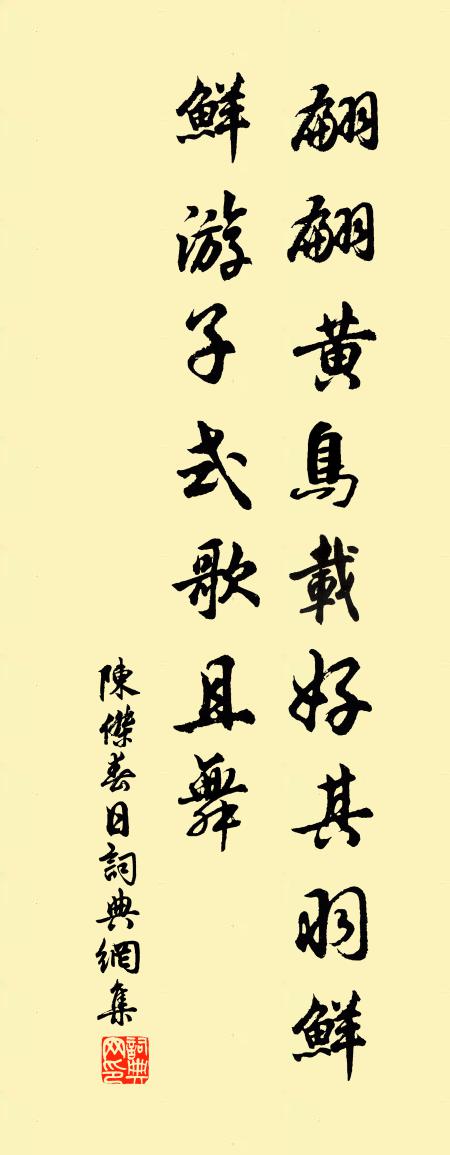 翩翩黄鳥載好其羽鮮
鮮游子式歌且舞
陳傑春日詞典網集
詞典网印